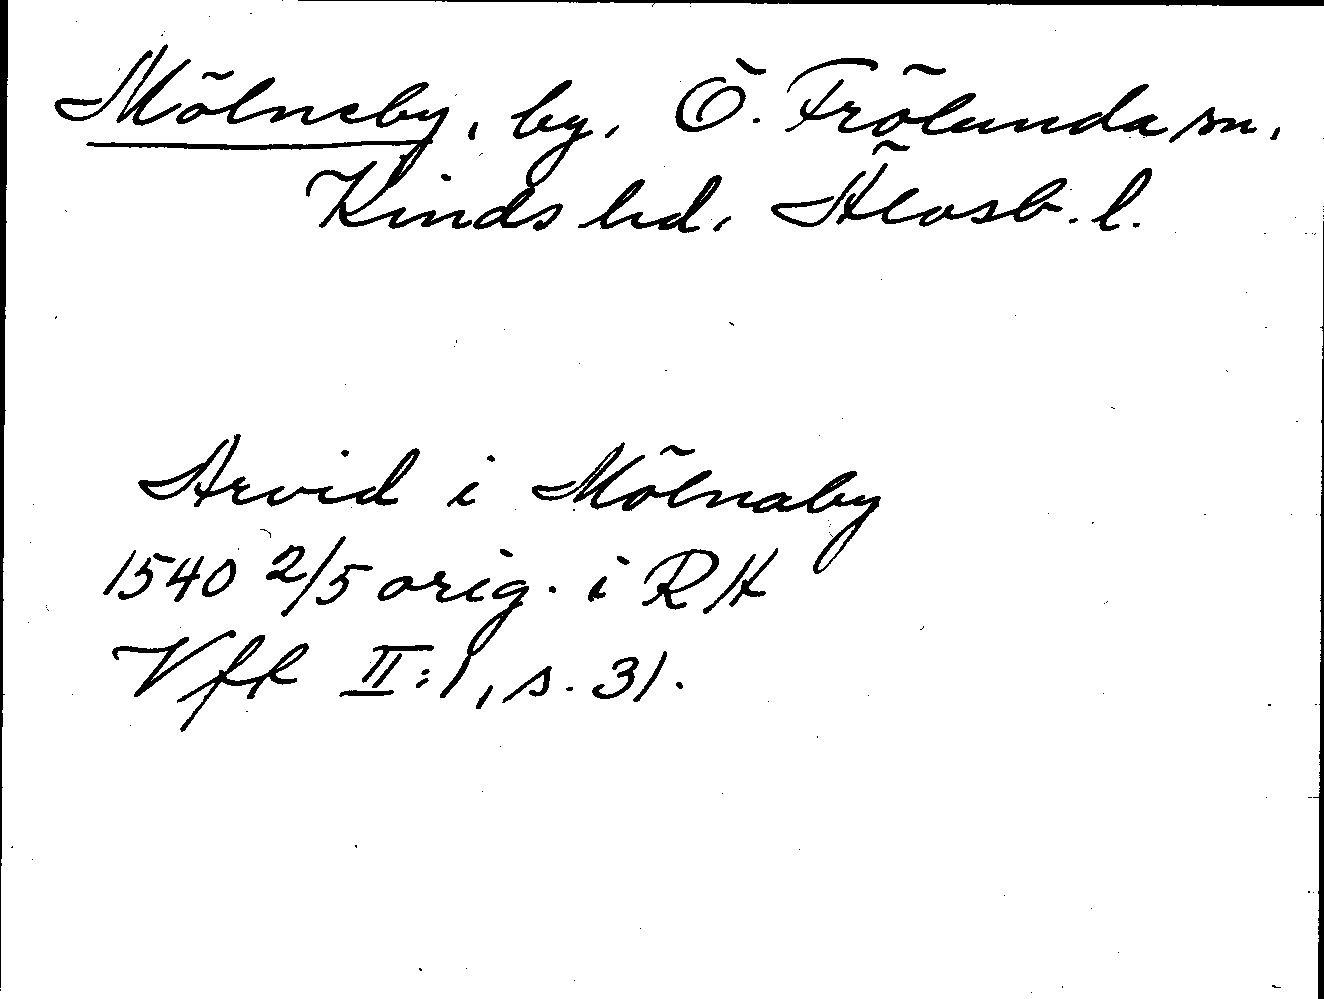 Mölneby, by, Ö. Frölunda sn,
Kinds hd, Älvsb. l.
Arvid i Mölnaby
1540 2/5 orig. i RA
Vfk II:1, s. 31.